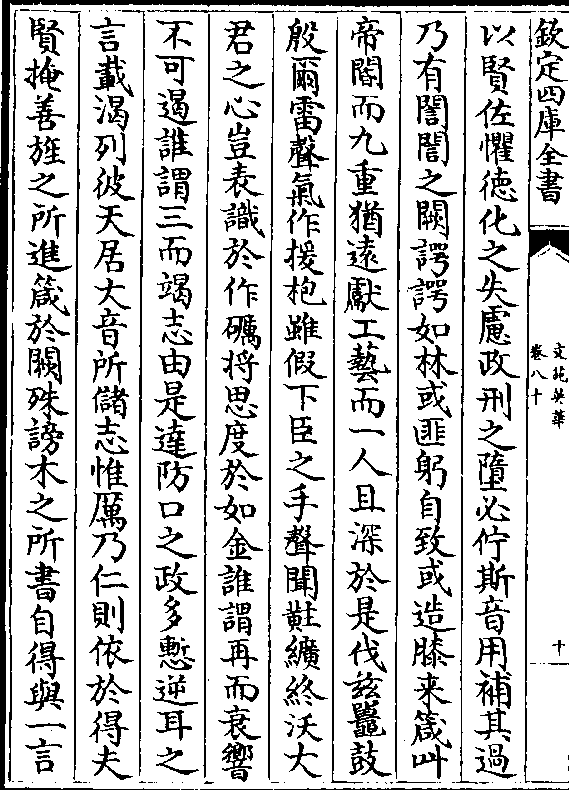 欽定四庫全書
文苑英華
卷八十
十
以賢佐懼徳化之失慮政刑之墮必佇斯音用補其過
乃有誾誾之闕諤諤如林或匪躬自致或造膝来箴叫
帝閽而九重猶遠獻工藝而一人且深於是伐兹鼉鼓
殷爾雷聲氣作援枹雖假下臣之手聲聞黈纊終沃大
君之心豈表識於作礪将思度於如金誰謂再而衰響
不可遏誰謂三而竭志由是達防口之政多慙逆耳之
言載渴列彼天居大音所儲志惟厲乃仁則依於得夫
賢掩善旌之所進箴於闕殊謗木之所書自得與一言